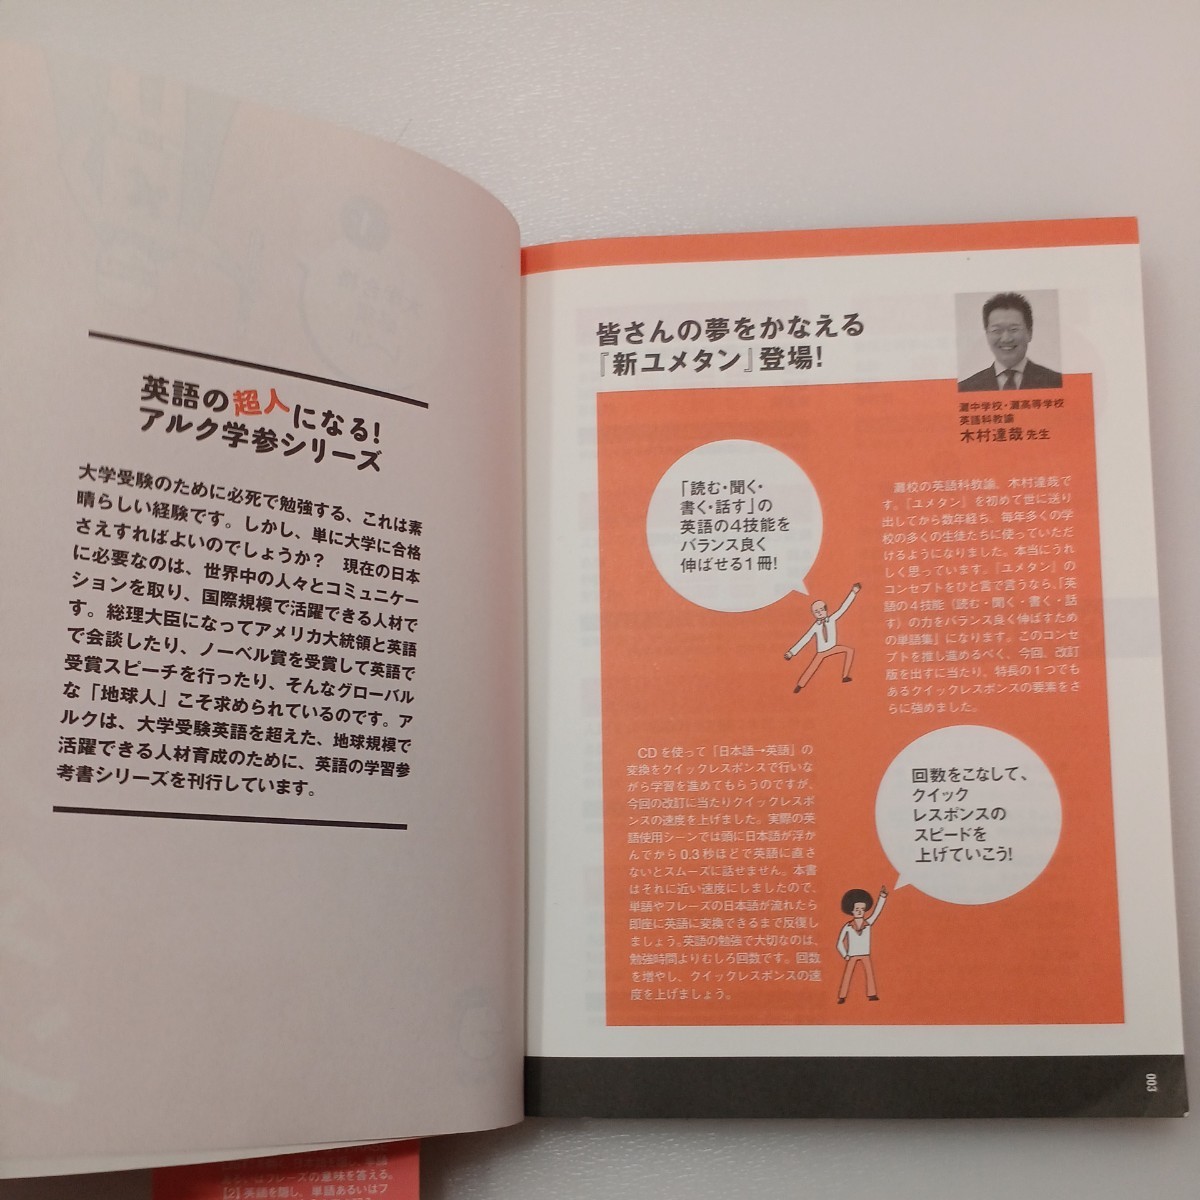 英語の超人になる!
アルク学参シリーズ
大学受験のために必死で勉強する、これは素
晴らしい経験です。しかし、単に大学に合格
さえすればよいのでしょうか? 現在の日本
に必要なのは、世界中の人々とコミュニケー
ションを取り、国際規模で活躍できる人材で
す。総理大臣になってアメリカ大統領と英語
で会談したり、ノーベル賞を受賞して英語で
受賞スピーチを行ったり、そんなグローバル
な「地球人」こそ求められているのです。ア
ルクは、大学受験英語を超えた、地球規模で
活躍できる人材育成のために、英語の学習参
考書シリーズを刊行しています。
皆さんの夢をかなえる
『新ユメタン』登場!
灘中学校・灘高等学校
英語科教諭
木村達哉 先生
「読む・聞く・
書く・話す」の
英語の4技能を
バランス良く
伸ばせる1冊!
灘校の英語科教諭、木村達哉で
す。『ユメタン』を初めて世に送り
出してから数年経ち、毎年多くの学
校の多くの生徒たちに使っていただ
けるようになりました。本当にうれ
しく思っています。『ユメタン』の
コンセプトをひと言で言うなら、「英
語の4技能(読む・聞く・書く・話
す)の力をバランス良く伸ばすため
の単語集」になります。このコンセ
プトを推し進めるべく、今回、改訂
版を出すに当たり、特長の1つでも
あるクイックレスポンスの要素をさ
らに強めました。
CDを使って「日本語→英語」の
変換をクイックレスポンスで行いな
がら学習を進めてもらうのですが、
今回の改訂に当たりクイックレスポ
ンスの速度を上げました。実際の英
語使用シーンでは頭に日本語が浮か
んでから0.3秒ほどで英語に直さ
ないとスムーズに話せません。本書
はそれに近い速度にしましたので、
単語やフレーズの日本語が流れたら
即座に英語に変換できるまで反復し
ましょう。英語の勉強で大切なのは、
勉強時間よりむしろ回数です。回数
を増やし、クイックレスポンスの速
度を上げましょう。
回数をこなして、
クイック
レスポンスの
スピードを
上げていこう!
003
はフレーズの意味を答える。
[2] 英語を隠し、単語あるいはフ